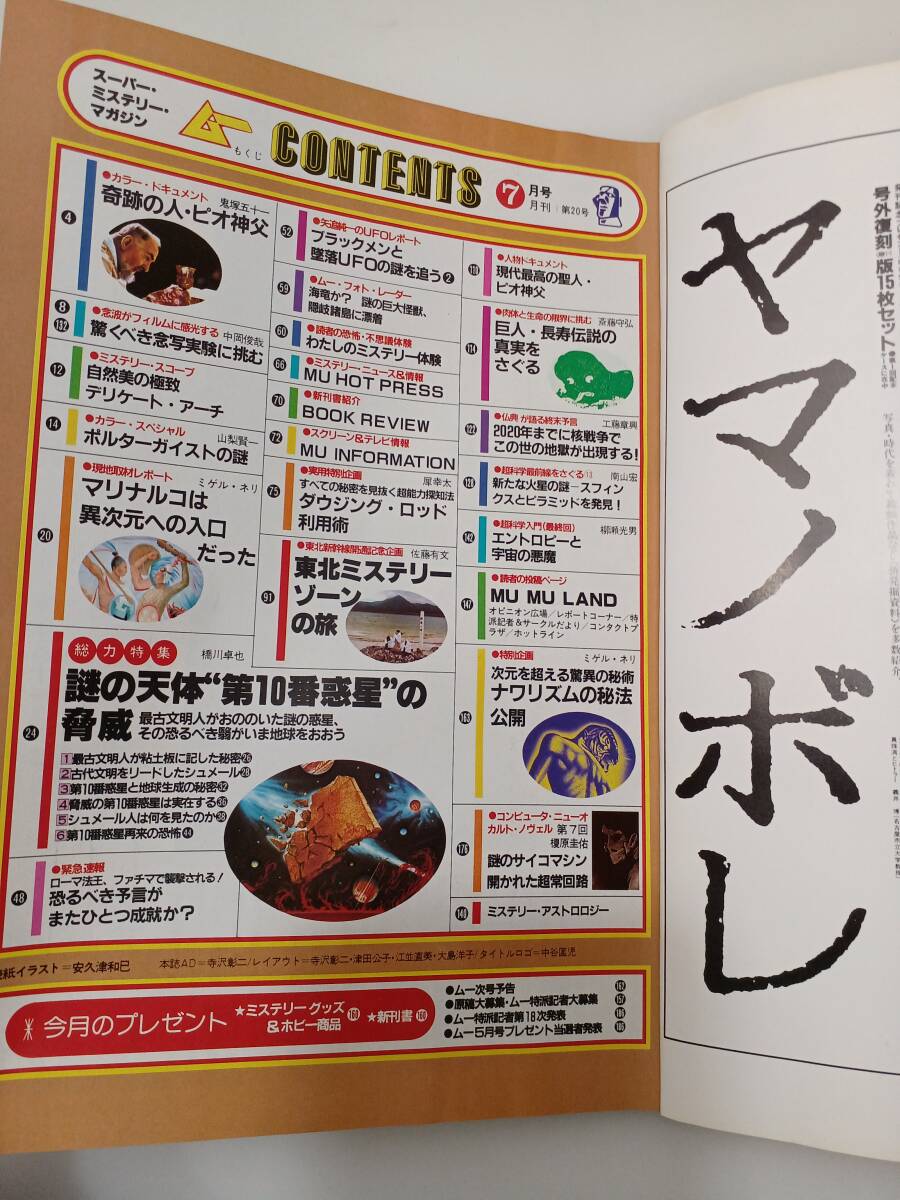 スーパー・
ミステリー・
マガジン
ムー
もくじ
CONTENTS
7月号
月刊 第20号
●カラー・ドキュメント 鬼塚五十一
4 奇跡の人・ピオ神父
8
192
●念波がフィルムに感光する 中岡俊哉
驚くべき念写実験に挑む
●ミステリー・スコープ
12 自然美の極致
デリケート・アーチ
●カラー・スペシャル 山梨賢一
14 ポルターガイストの謎
●現地取材レポート ミゲル・ネリ
20 マリナルコは
異次元への入口
だった
52 ●矢追純一のUFOレポート
ブラックメンと
墜落UFOの謎を追う②
59 ●ムー・フォト・レーダー
海竜か? 謎の巨大怪獣、
隠岐諸島に漂着
60 ●読者の恐怖・不思議体験
わたしのミステリー体験
66 ●ミステリー・ニュース&情報
MU HOT PRESS
70 ●新刊書紹介
BOOK REVIEW
72 ●スクリーン&テレビ情報
MU INFORMATION
75 ●実用特別企画 犀幸太
すべての秘密を見抜く超能力探知法
ダウジング・ロッド
利用術
91 ●東北新幹線開通記念企画 佐藤有文
東北ミステリー
ゾーン
の旅
110 ●人物ドキュメント
現代最高の聖人・
ピオ神父
114 ●肉体と生命の限界に挑む 斎藤守弘
巨人・長寿伝説の
真実を
さぐる
122 ●仏典が語る終末予言 工藤章興
2020年までに核戦争で
この世の地獄が出現する!
128 ●超科学最前線をさぐる⑬ 南山宏
新たな火星の謎=スフィン
クスとピラミッドを発見!
142 ●超科学入門(最終回) 柳瀬光男
エントロピーと
宇宙の悪魔
147 ●読者の投稿ページ
MU MU LAND
オピニオン広場/レポートコーナー/特
派記者&サークルだより/コンタクトプ
ラザ/ホットライン
163 ●特別企画 ミゲル・ネリ
次元を超える驚異の秘術
ナワリズムの秘法
公開
176 ●コンピュータ・ニューオ
カルト・ノヴェル 第7回
榎原圭佑
謎のサイコマシン
開かれた超常回路
140 ミステリー・アストロロジー
総力特集 橋川卓也
24 謎の天体“第10番惑星”の
脅威 最古文明人がおののいた謎の惑星、
その恐るべき翳がいま地球をおおう
1 最古文明人が粘土板に記した秘密26
2 古代文明をリードしたシュメール28
3 第10番惑星と地球生成の秘密32
4 脅威の第10番惑星は実在する36
5 シュメール人は何を見たのか38
6 第10番惑星再来の恐怖44
48 ●緊急速報
ローマ法王、ファチマで襲撃される!
恐るべき予言が
またひとつ成就か?
表紙イラスト=安久津和巳 本誌AD=寺沢彰二/レイアウト=寺沢彰二・津田公子・江並直美・大島洋子/タイトルロゴ=中谷匡児
今月のプレゼント ★ミステリーグッズ
&ホビー商品 168 ★新刊書 160
●ムー次号予告 162
●原稿大募集・ムー特派記者大募集 157
●ムー特派記者第18次発表
●ムー5月号プレゼント当選者発表
号外復刻版15枚セット
ヤマノボし